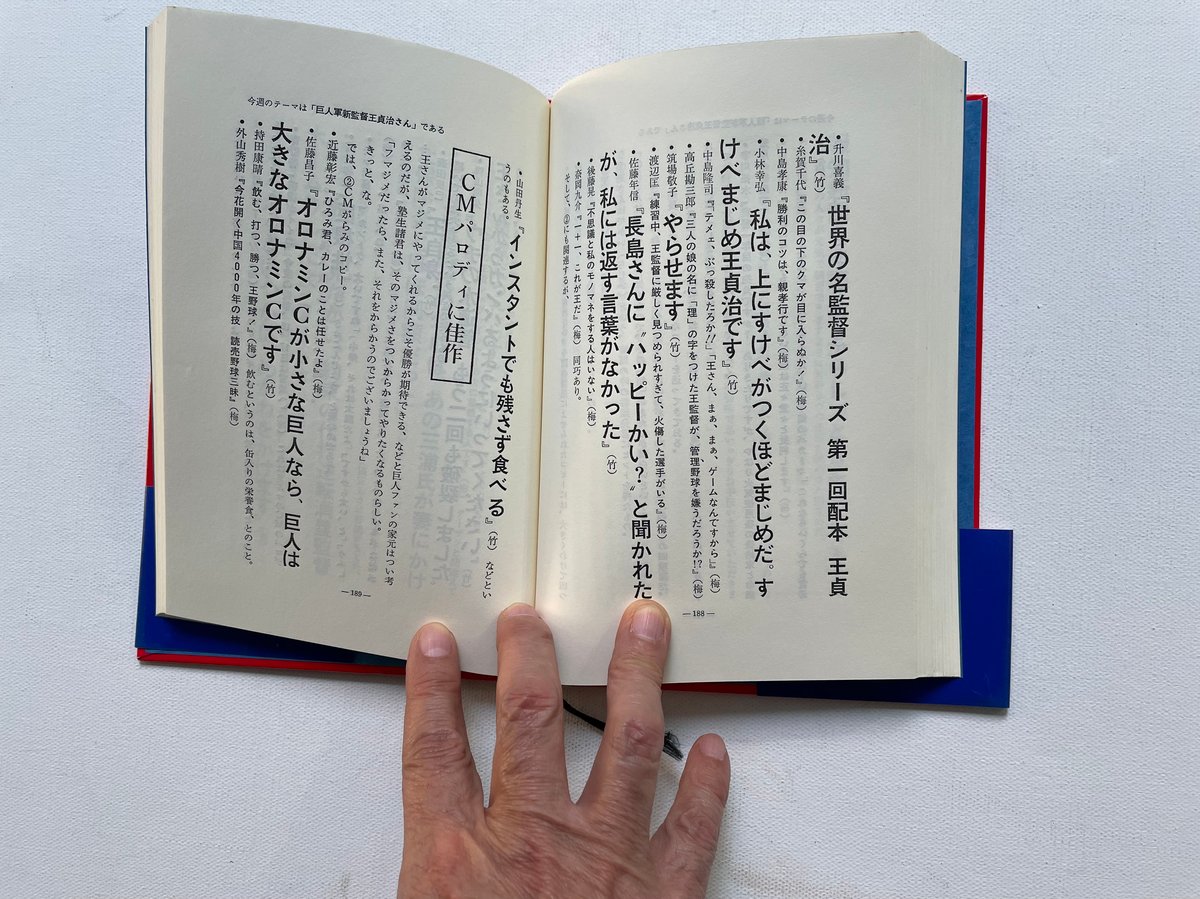 ・升川喜義『世界の名監督シリーズ　第一回配本　王貞
治』（竹）
・糸賀千代『この目の下のクマが目に入らぬか！』（梅）
・中島孝康『勝利のコツは、親孝行です』（梅）
・小林幸弘『私は、上にすけべがつくほどまじめだ。す
けべまじめ王貞治です』（竹）
・中島隆司『「テメェ、ぶっ殺したろか!!」「王さん、まぁ、まぁ、ゲームなんですから」』（梅）
・高丘勘三郎『三人の娘の名に「理」の字をつけた王監督が、管理野球を嫌うだろうか!?』（梅）
・筑場敬子『やらせます』（竹）
・渡辺匡『練習中、王監督に厳しく見つめられすぎて、火傷した選手がいる』（梅）
・佐藤年信『長島さんに〝ハッピーかい？〟と聞かれた
が、私には返す言葉がなかった』（竹）
・後藤晃『不思議と私のモノマネをする人はいない』（梅）
・奈岡九介『一＋一、これが王だ』（梅）　同巧あり。
そして、②にも関連するが、
— 188 —
今週のテーマは「巨人軍新監督王貞治さん」である
・山田丹生『インスタントでも残さず食べる』（竹）　などとい
うのもある。
CMパロディに佳作
王さんがマジメにやってくれるからこそ優勝が期待できる、などと巨人ファンの家元はつい考
えるのだが、塾生諸君は、そのマジメさをついからかってやりたくなるものらしい。
「フマジメだったら、また、それをからかうのでございましょうね」
きっと、な。
では、②CMがらみのコピー。
・近藤彰宏『ひろみ君、カレーのことは任せたよ』（梅）
・佐藤昌子『オロナミンCが小さな巨人なら、巨人は
大きなオロナミンCです』（竹）
・持田康晴『飲む、打つ、勝つ、王野球！』（梅）　飲むというのは、缶入りの栄養食、とのこと。
・外山秀樹『今花開く中国４０００年の技　読売野球三昧』（梅）
— 189 —